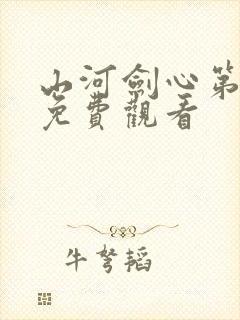 山河劍心第
免費觀看
牛弩韜